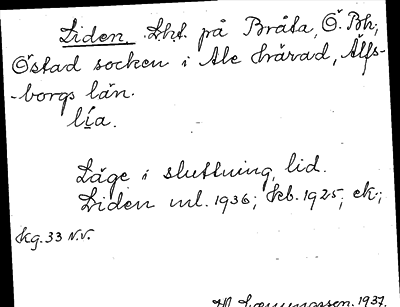 Liden. Lht. på Bråta, Ö. Bh;
Östad socken i Ale härad, Älfs-
-borgs län.
lía.
Läge i sluttning, lid.
Liden ml. 1936; Jeb. 1925, ek.;
Kg. 33 N.V.
1937.